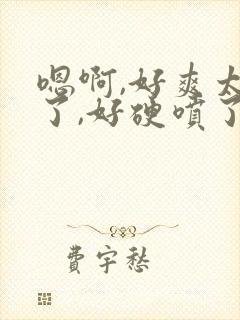 嗯啊,好爽太
了,好硬喷了
费宇愁